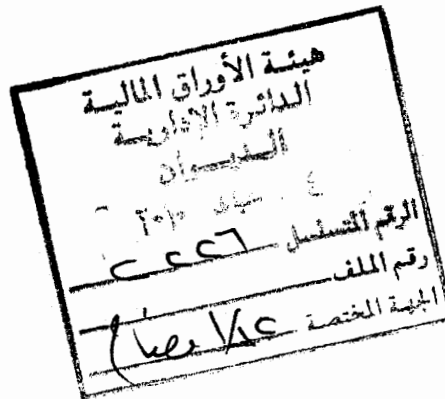 هيئة الأوراق المالية
الدائرة الإدارية
الديوان
٤ ٢٠١٠
الرقم المتسلسل ٢٢٢٦
رقم الملف
الجهة المختصة